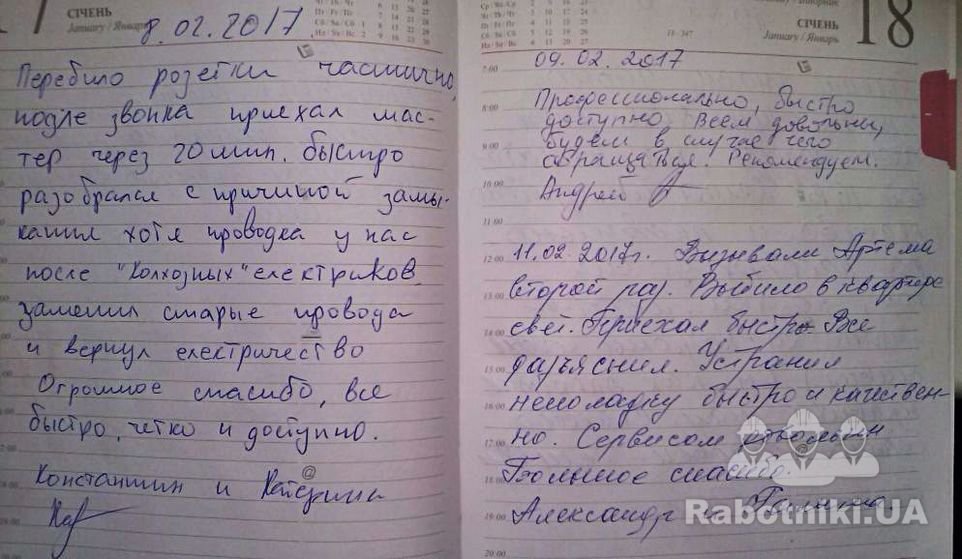 СІЧЕНЬ
January / Январь
8.02.2017
Перебило розетки частично,
подле звонка приехал мас-
тер через 20 мин. быстро
разобрался с причиной замы-
кания хотя проводка у нас
после "Колхозных" електриков
заменил старые провода
и вернул електричество
Огромное спасибо, все
быстро, четко и доступно.
Константин и Катерина
СІЧЕНЬ
January / Январь
18
18-347
7:00
09.02.2017
8:00
Профессионально, быстро
доступно. Всем довольны,
9:00
будем в случае чего
обращаться. Рекомендуем.
10:00
Андрей
11:00
12:00
11.02.2017г. Визвали Артема
13:00
второй раз. Выбило в квартире
свет. Приехал быстро Все
14:00
Устранил
неполадку быстро и качествен-
16:00
но. Сервисом довольны
17:00
Большое спасибо.
Александр и
19:00
20:00
Rabotniki.UA